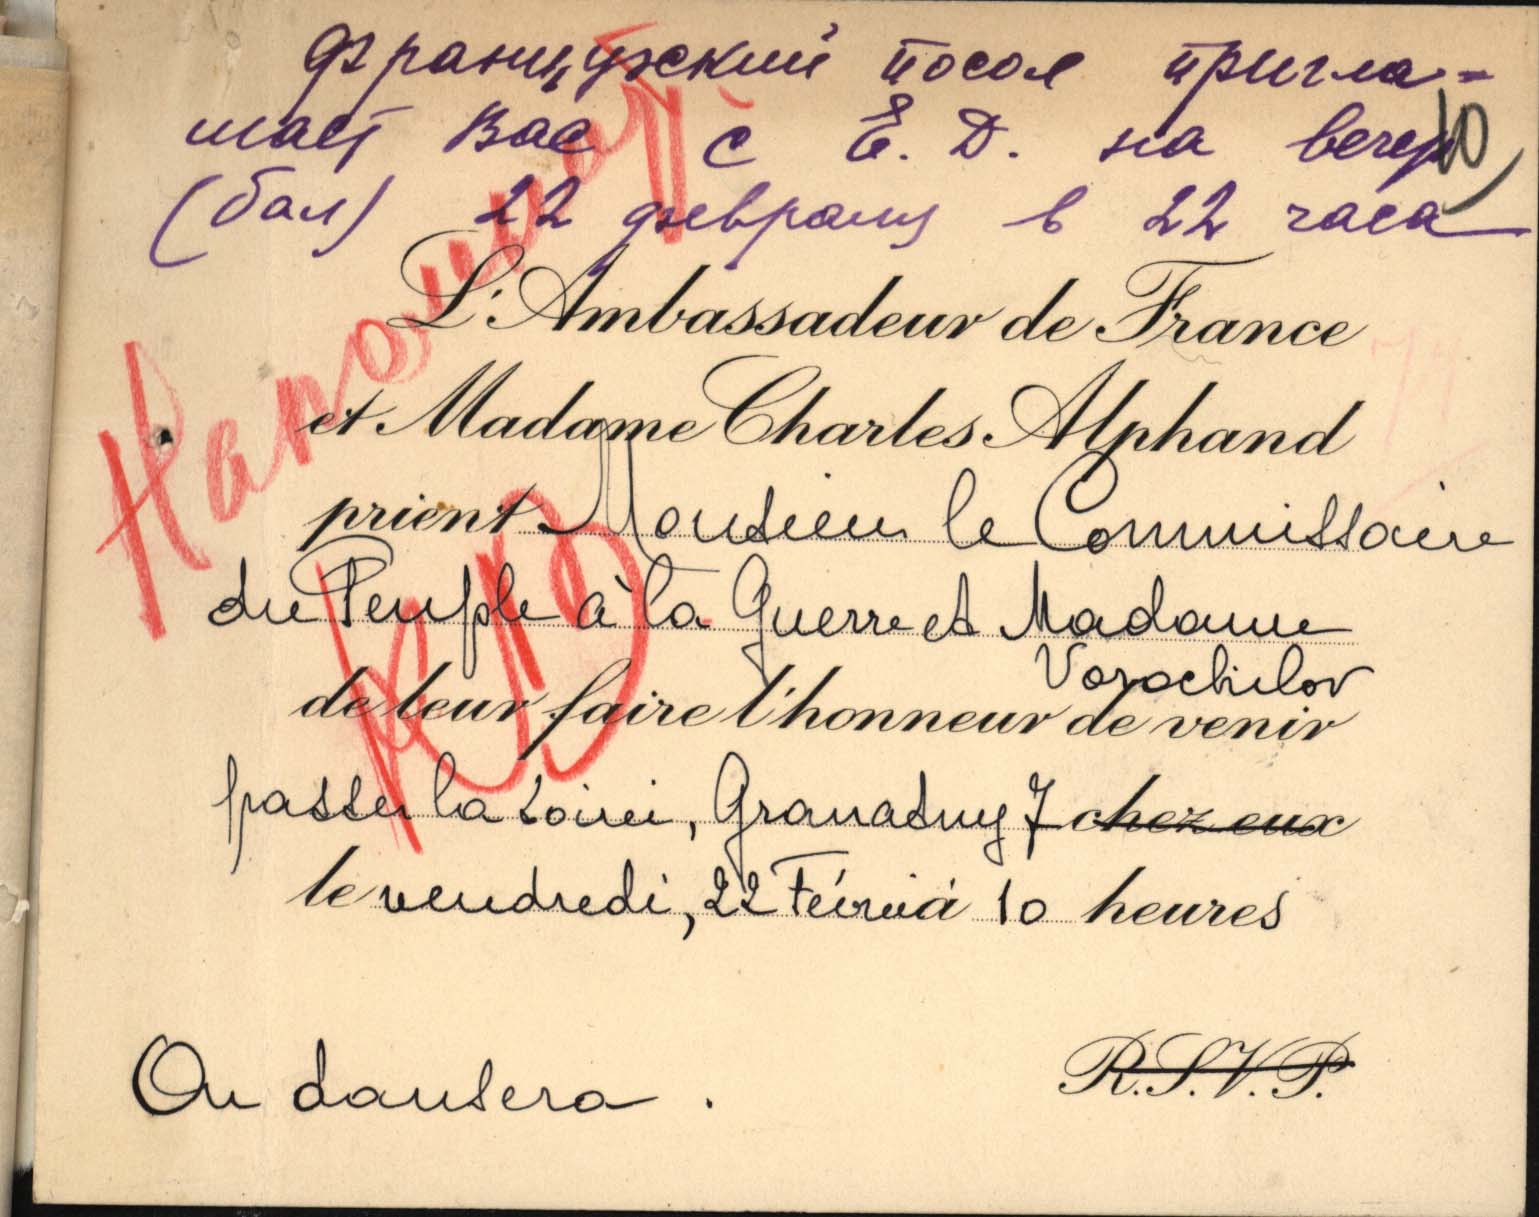 французский посол пригла-
шает Вас с Е. Д. на вечер
(бал) 22 февраля в 22 часа
10
Напомнить
КВ
L'Ambassadeur de France
et Madame Charles Alphand
prient Monsieur le Commissaire
du Peuple à la Guerre et Madame
Vorochilov
de leur faire l'honneur de venir
passer la soirée, Granatny 7 chez eux
le vendredi, 22 Février à 10 heures
On dansera.
R.S.V.P.
74